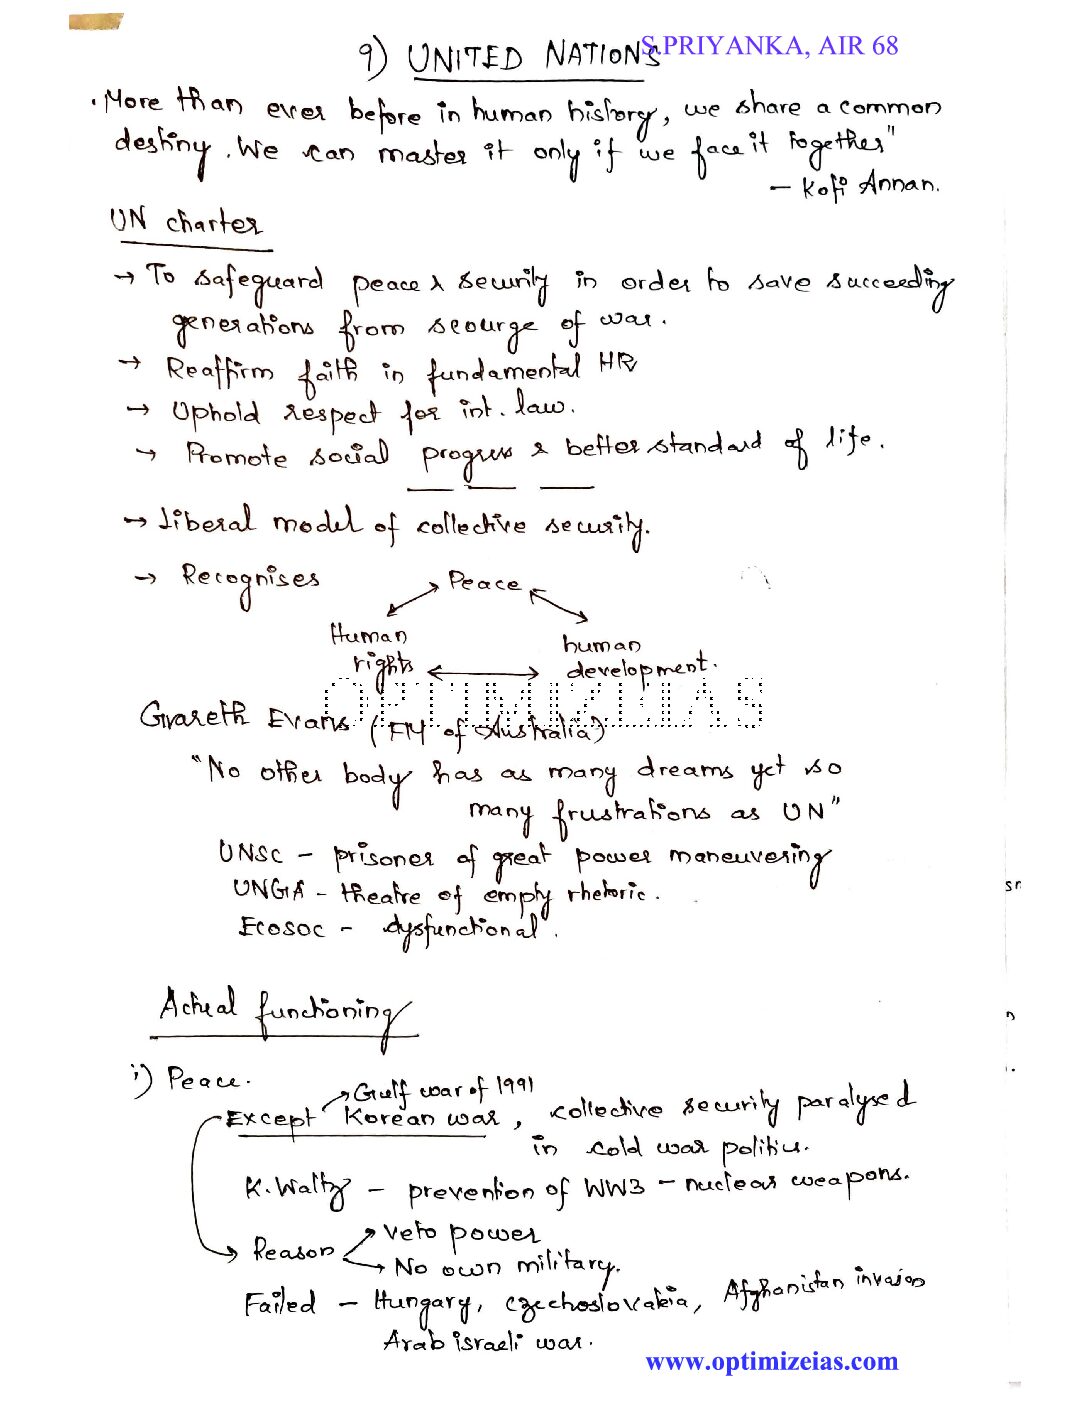 S.PRIYANKA, AIR 68
9) UNITED NATIONS
"More than ever before in human history, we share a common
destiny. We can master it only if we face it together"
- Kofi Annan.
UN charter
→ To safeguard peace & security in order to save succeeding
generations from scourge of war.
→ Reaffirm faith in fundamental HR
→ Uphold respect for int. law.
→ Promote social progress & better standard of life.
→ Liberal model of collective security.
→ Recognises
Peace
Human rights
human development.
OPTIMIZEIAS
Gvareth Evans (FM of Australia)
"No other body has as many dreams yet so
many frustrations as UN"
UNSC - prisoner of great power maneuvering
UNGA - theatre of empty rhetoric.
ECOSOC - dysfunctional.
Actual functioning
i) Peace.
Gulf war of 1991
Except Korean war, collective security paralysed
in cold war politics.
K. Waltz - prevention of WW3 - nuclear weapons.
Reason
veto power
No own military.
Failed - Hungary, czechoslovakia, Afghanistan invasion
Arab israeli war.
www.optimizeias.com